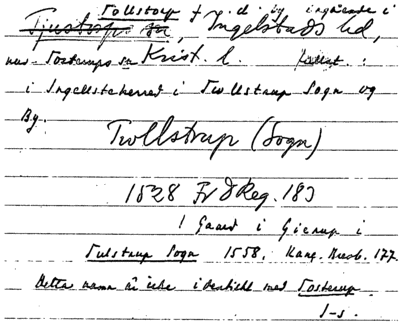 Tollstorp
Tjustorps sn, Ingelstads hd,
nuv. Tosterups sn Krist. l.
i Ingelstedherred i Trollstrup Sogn og
By.
Trollstrup (Sogn)
1528 Fr I Reg. 183
1 Gaard i Gierup i
Tulstrup Sogn 1558. Kanc. Brevb. 177
Detta namn är icke identiskt med Tosterup.
I-s.